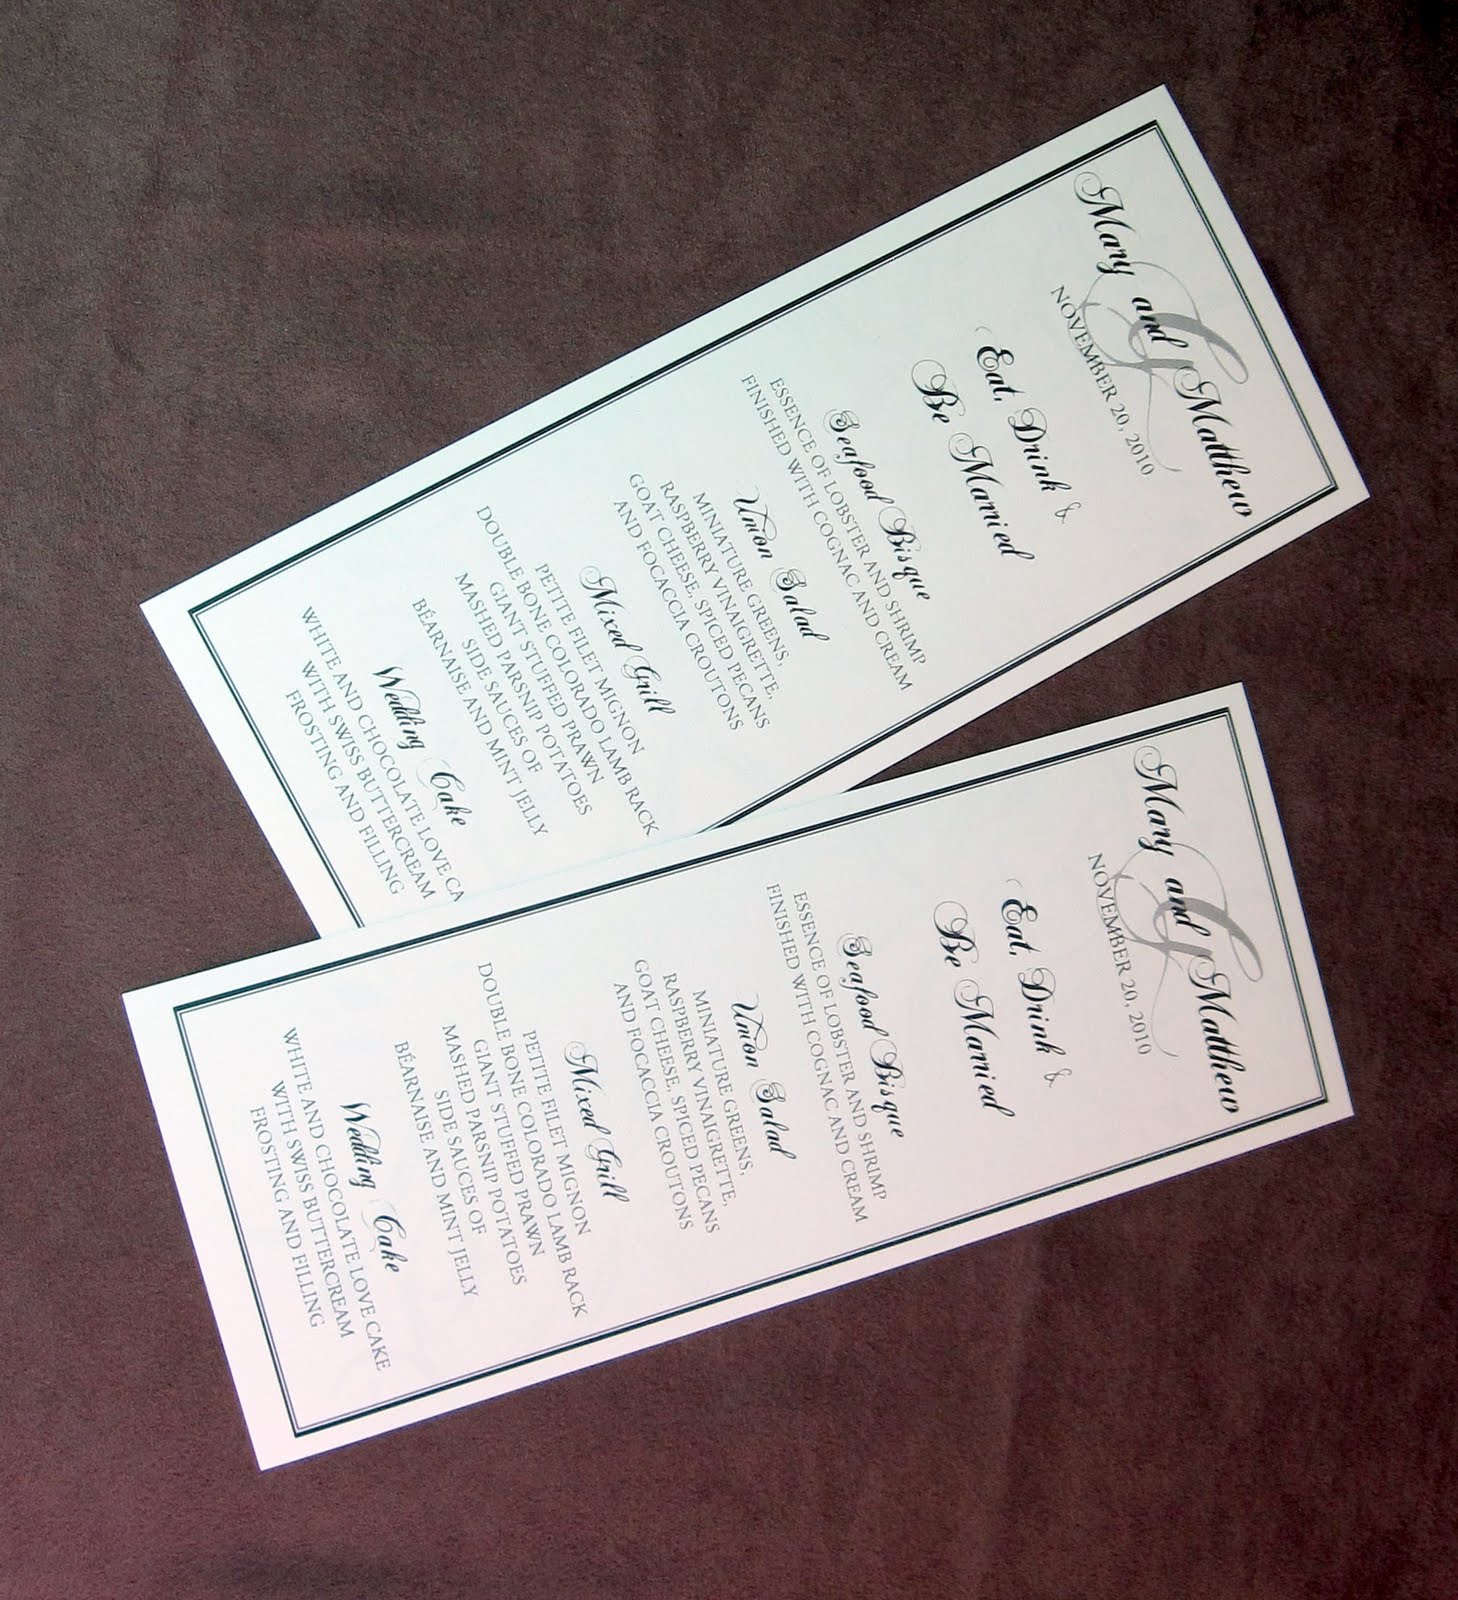 Mary and Matthew
G
NOVEMBER 20, 2010
Eat, Drink &
Be Married
Seafood Bisque
ESSENCE OF LOBSTER AND SHRIMP
FINISHED WITH COGNAC AND CREAM
Union Salad
MINIATURE GREENS,
RASPBERRY VINAIGRETTE,
GOAT CHEESE, SPICED PECANS
AND FOCACCIA CROUTONS
Mixed Grill
PETITE FILET MIGNON
DOUBLE BONE COLORADO LAMB RACK
GIANT STUFFED PRAWN
MASHED PARSNIP POTATOES
SIDE SAUCES OF
BÉARNAISE AND MINT JELLY
Wedding Cake
WHITE AND CHOCOLATE LOVE CA
WITH SWISS BUTTERCREAM
FROSTING AND FILLING
Mary and Matthew
G
NOVEMBER 20, 2010
Eat, Drink &
Be Married
Seafood Bisque
ESSENCE OF LOBSTER AND SHRIMP
FINISHED WITH COGNAC AND CREAM
Union Salad
MINIATURE GREENS,
RASPBERRY VINAIGRETTE,
GOAT CHEESE, SPICED PECANS
AND FOCACCIA CROUTONS
Mixed Grill
PETITE FILET MIGNON
DOUBLE BONE COLORADO LAMB RACK
GIANT STUFFED PRAWN
MASHED PARSNIP POTATOES
SIDE SAUCES OF
BÉARNAISE AND MINT JELLY
Wedding Cake
WHITE AND CHOCOLATE LOVE CAKE
WITH SWISS BUTTERCREAM
FROSTING AND FILLING